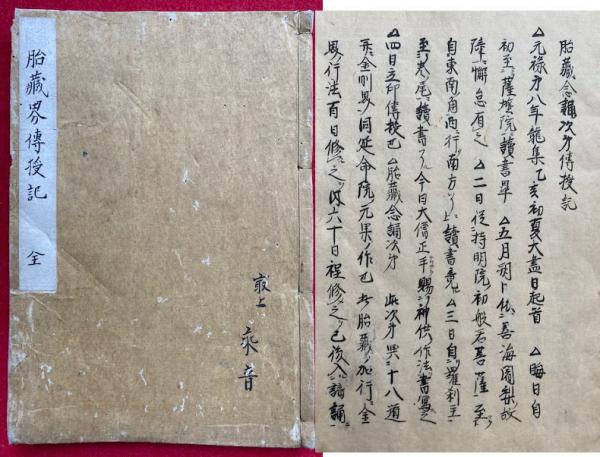 胎藏界傳授記 全
最上
乘音
胎藏念誦次才傳授記
△元禄才八年龍集乙亥初夏大盡日起首 △晦日自
初至薩埵院讀書畢 △五月朔卜依善海闍梨故
障懈怠有之 △二日從持明院初般若菩薩至
自東南角西行南方以上讀書竟 △三日自羅刹主
至卷尾讀書了今日大僧正手賜神供作法書寫之
△四日立印傳授已 △胎藏念誦次才 此次才與十八道
并金剛界同延命院元杲作也 此胎藏加行全
界行法百日修之以六十日程修之已後入諸誦